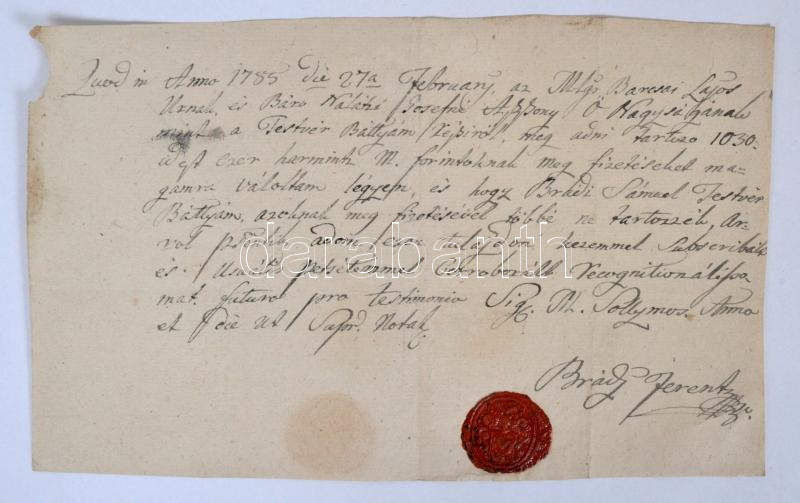 Quod in Anno 1785 die 27a February, az Mlgs Barcsai Lajos
Urnak, és Báro Naláczi Josefné Aszszony Ő Nagyságának
mint a Testvér Báttyám részéről, meg adni tartozo 1030:
idest ezer harmintz M. forintoknak meg fizetéseket ma=
gamra válaltam légyen, és hogy Brádi Sámuel Testvér
Báttyám, azoknak meg fizetésével többé ne tartozzék, Ar=
rol adom ezen tulajdon kezemmel Subscribált
és Usuális petsétemmel Corroborált Recognitionálisso
mat. futuro pro testimonio Sig. M. Sollymos. Anno
et die ut Supr. Notat.
Brády Ferentz
darabanth